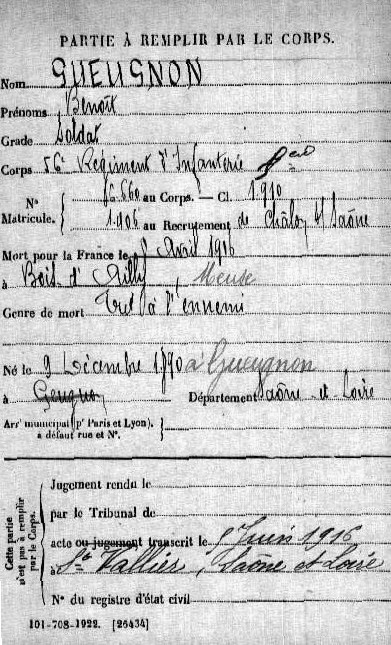 PARTIE À REMPLIR PAR LE CORPS.
Nom GUEUGNON
Prénoms Benoit
Grade Soldat
Corps 56e Régiment d'Infanterie
N° 6.660 au Corps. — Cl. 1910
Matricule. 1.906 au Recrutement de Châlon s/ Saône
Mort pour la France le Avril 1916
à Bois d'Ailly, Meuse
Genre de mort Tué à l'ennemi
Né le 9 Décembre 1890 à Gueugnon
à Département Saône et Loire
Arrt municipal (pr Paris et Lyon),
à défaut rue et N°.
Cette partie
n'est pas à remplir
par le Corps.
Jugement rendu le
par le Tribunal de
acte ou jugement transcrit le Juin 1916
à St Vallier, Saône et Loire
N° du registre d'état civil
101-708-1922. [26434]